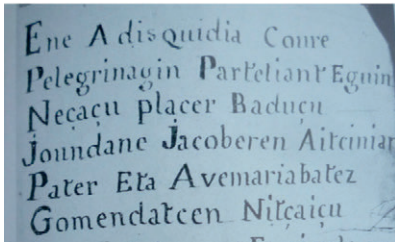 Ene Adisquidia Conre
Pelegrinagin Parteliant Eguin
Neçaçu placer Baduçu
joundane jacoberen Aitciniar
Pater Eta Avemariabatez
Gomendatcen Nitçaiçu